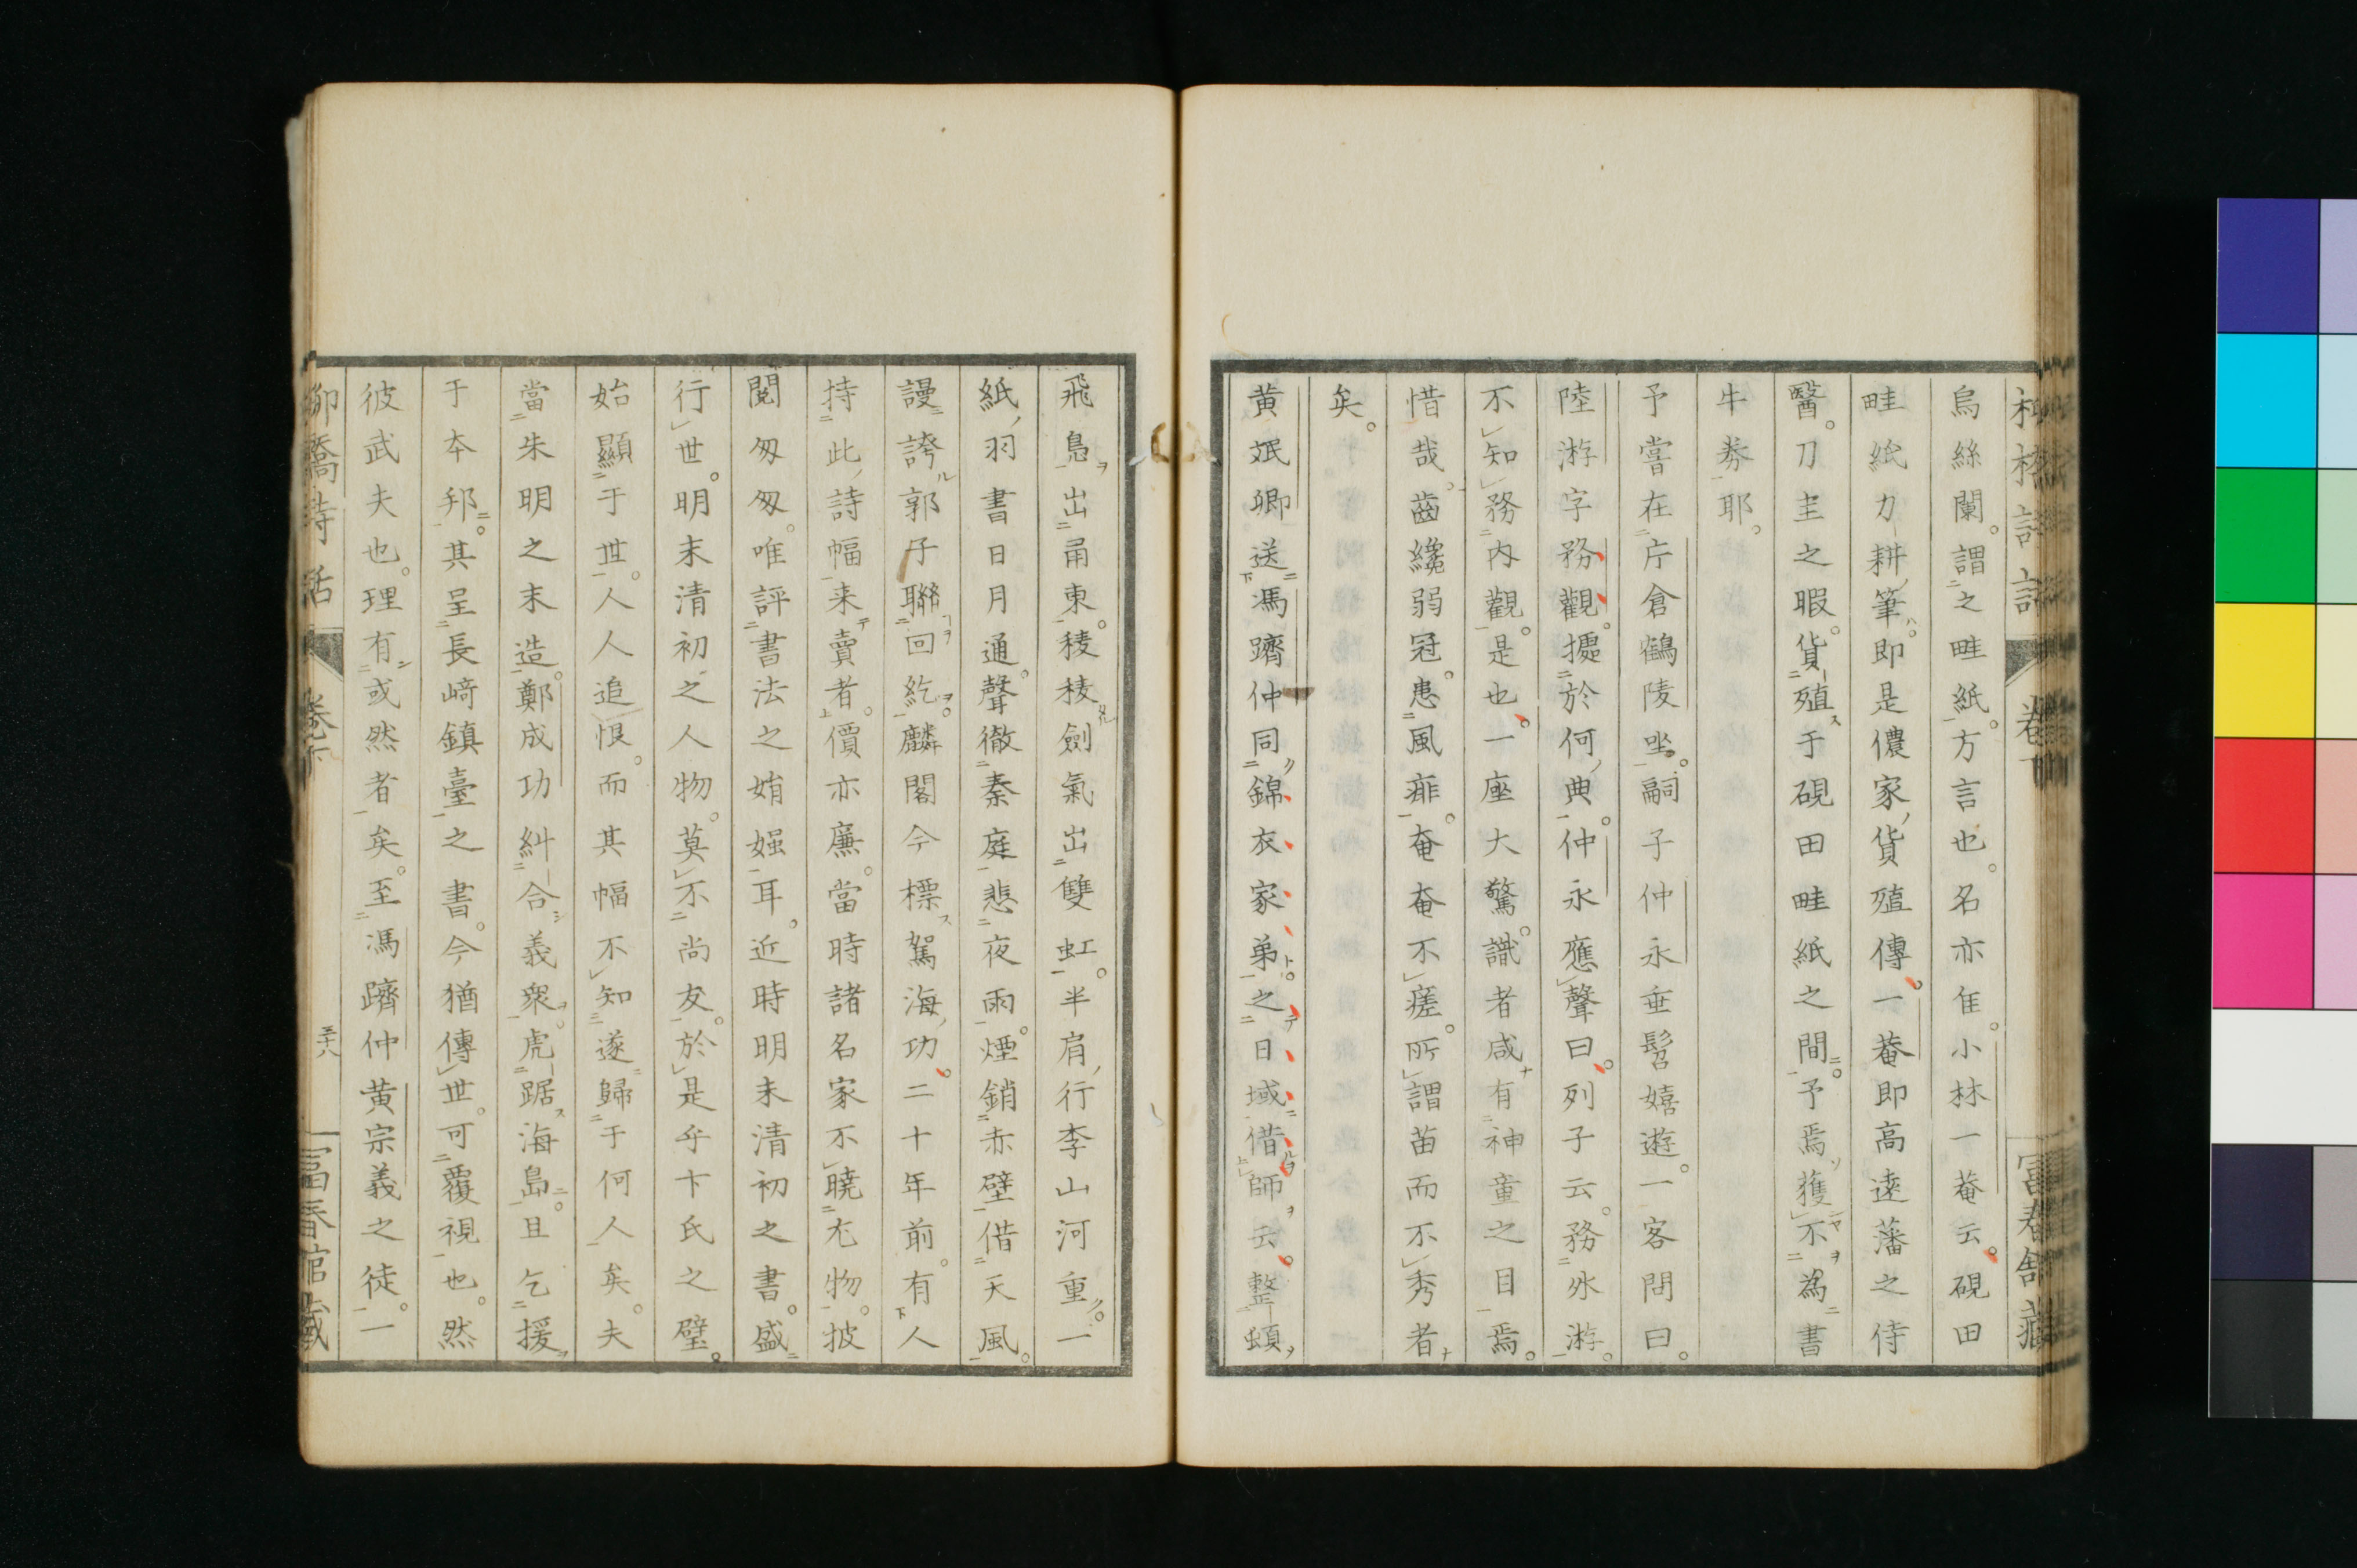 烏絲闌。謂之畦紙。方言也。名亦佳。小林一菴云。硯田
畦紙力耕筆。即是儂家貨殖傳。一菴即高遠藩之侍
醫。刀圭之暇。貨殖于硯田畦紙之間。予焉獲不為書
牛券耶。
予嘗在片倉鶴陵坐。嗣子仲永垂髫嬉遊。一客問曰。
陸游字務觀。據於何典。仲永應聲曰。列子云。務外游。
不知務內觀。是也。一座大驚。識者咸有神童之目焉。
惜哉。齒纔弱冠。患風痱。奄奄不瘥。所謂苗而不秀者
矣。
黃岷卿送馮躋仲同錦衣家弟之日域借師云。整頓
飛鳧出甬東。稜稜劍氣出雙虹。半肩行李山河重。一
紙羽書日月通。聲徹秦庭悲夜雨。煙銷赤壁借天風。
謾誇郭子聯回紇。麟閣今標駕海功。二十年前。有人
持此詩幅来賣者。價亦廉。當時諸名家不曉尤物。披
閱匆匆。唯評書法之媸姸耳。近時明末清初之書。盛
行世。明末清初之人物。莫不尚友。於是乎卞氏之璧。
始顯于世。人人追恨。而其幅不知遂歸于何人矣。夫
當朱明之末造。鄭成功糾合義衆。虎踞海島。且乞援
于本邦。其呈長﨑鎮臺之書。今猶傳世。可覆視也。然
彼武夫也。理有或然者矣。至馮躋仲黃宗義之徒。一
柳橋詩話
卷下
三十八
富春館藏